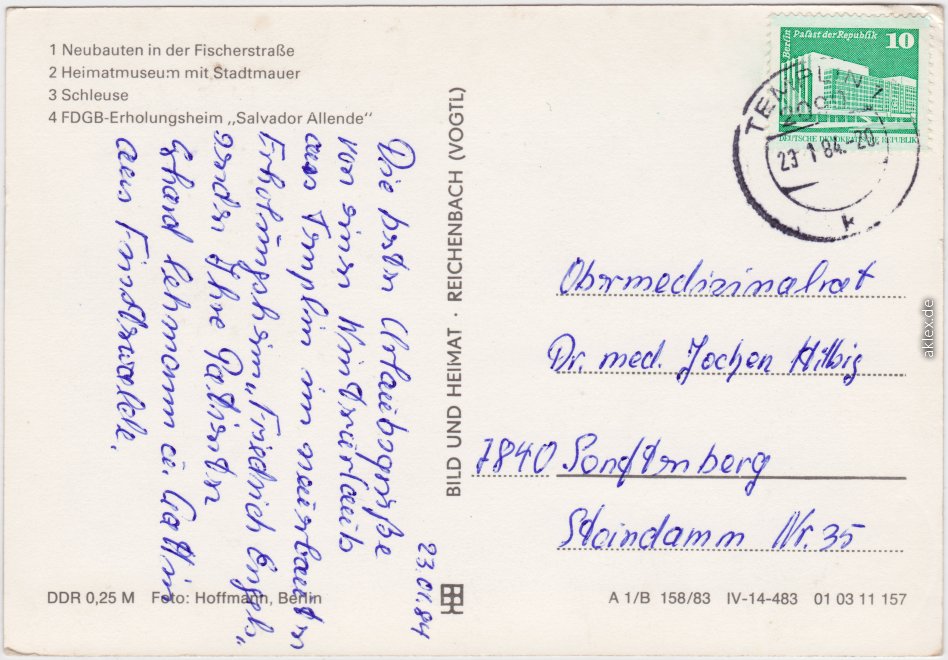 1 Neubauten in der Fischerstraße
2 Heimatmuseum mit Stadtmauer
3 Schleuse
4 FDGB-Erholungsheim „Salvador Allende"
Berlin
Palast der Republik
10
DEUTSCHE DEMOKRATISCHE REPUBLIK
TEMPLIN 1
2090
23.1.84.-20
k
23.01.84
Die besten Urlaubsgrüße
von einem Winterurlaub
aus Templin im neuerbauten
Erholungsheim „Friedrich Engels"
senden Ihre Patienten
Erhard Lehmann u. Gattin
aus Finsterwalde.
BILD UND HEIMAT · REICHENBACH (VOGTL)
Obermedizinalrat
Dr. med. Jochen Hilbig
7840 Senftenberg
Steindamm Nr. 35
DDR 0,25 M Foto: Hoffmann, Berlin
A 1/B 158/83 IV-14-483 01 03 11 157
aklex.de